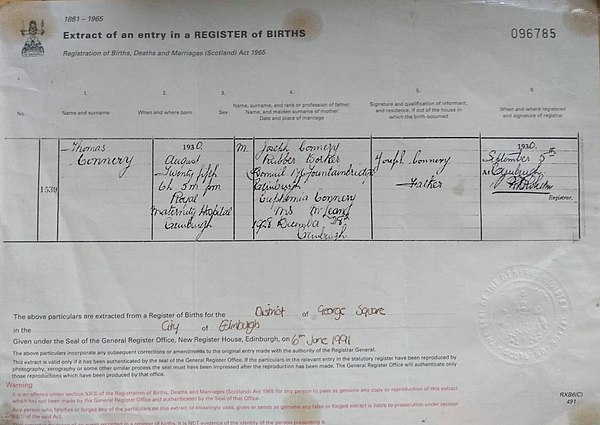 1861 - 1965
Extract of an entry in a REGISTER of BIRTHS
096785
Registration of Births, Deaths and Marriages (Scotland) Act 1965
1. 2. 3. 4. 5. 6.
No. Name and surname When and where born Sex Name, surname, and rank or profession of father, Name, and maiden surname of mother Date and place of marriage Signature and qualification of informant, and residence, if out of the house in which the birth occurred When and where registered and signature of registrar
1539
Thomas
Connery
1930.
August
Twenty fifth
6h 5m pm
Royal
Maternity Hospital
Edinburgh
M.
Joseph Connery
Rubber Worker
Fountainbridge
Edinburgh
Euphemia Connery
M.S. McLean
1928 December 28th
Edinburgh
Joseph Connery
Father
1930.
September 5th
At Edinburgh
Registrar.
The above particulars are extracted from a Register of Births for the District of George Square
in the City of Edinburgh
Given under the Seal of the General Register Office, New Register House, Edinburgh, on 6th June 1991
The above particulars incorporate any subsequent corrections or amendments to the original entry made with the authority of the Registrar General.
This extract is valid only if it has been authenticated by the seal of the General Register Office. If the particulars in the relevant entry in the statutory register have been reproduced by
photography, xerography or some other similar process the seal must have been impressed after the reproduction has been made. The General Register Office will authenticate only
those reproductions which have been produced by that office.
Warning
It is an offence under section 53(3) of the Registration of Births, Deaths and Marriages (Scotland) Act 1965 for any person to pass as genuine any copy or reproduction of this extract
which has not been made by the General Register Office and authenticated by the Seal of that Office.
Any person who falsifies or forges any of the particulars on this extract or knowingly uses, gives or sends as genuine any false or forged extract is liable to prosecution under section
53(1) of the said Act.
RXB6(C)
491